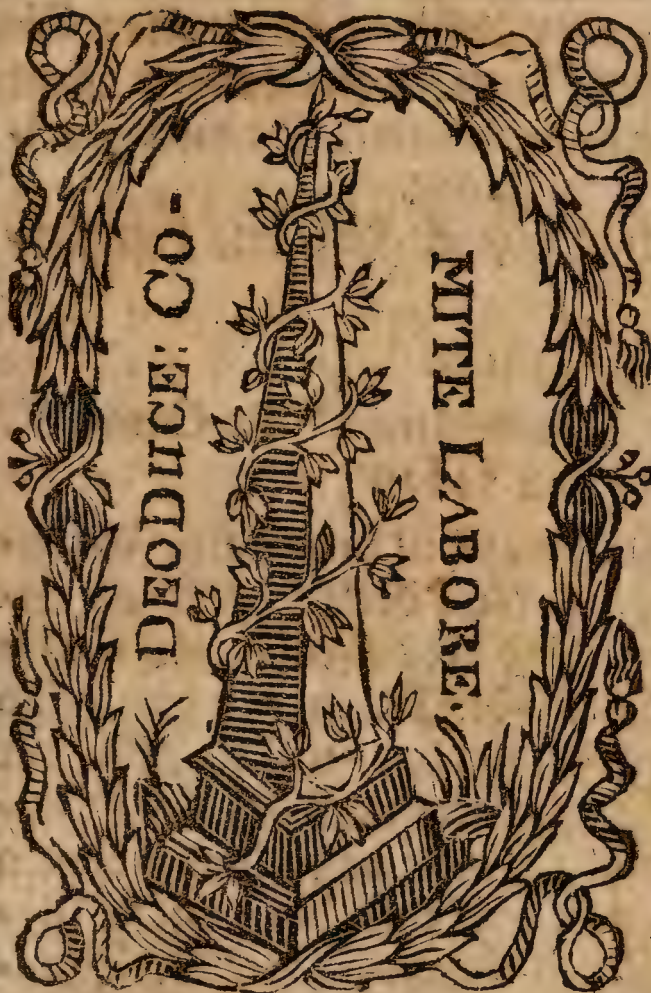 DEODUCE: CO-
MITE LABORE.